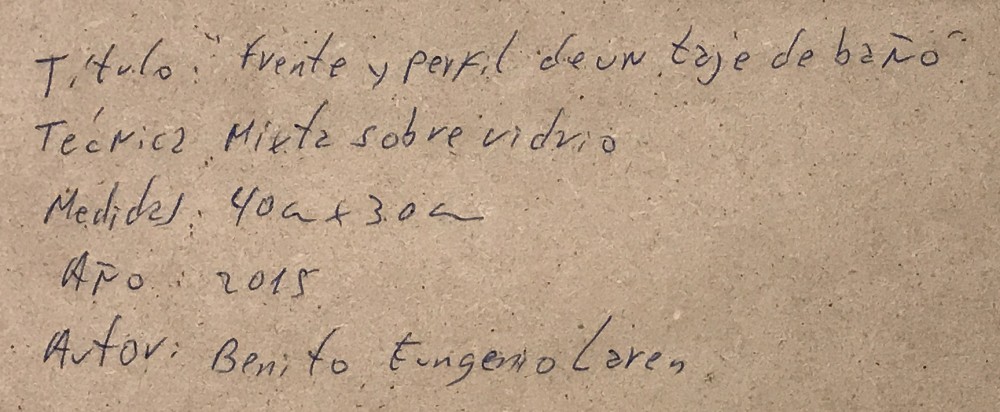 Título: "frente y perfil de un taje de baño"
Tecnica Mixta sobre vidrio
Medidas: 40cm x 30cm
Año: 2015
Autor: Benito Eungenio Laren